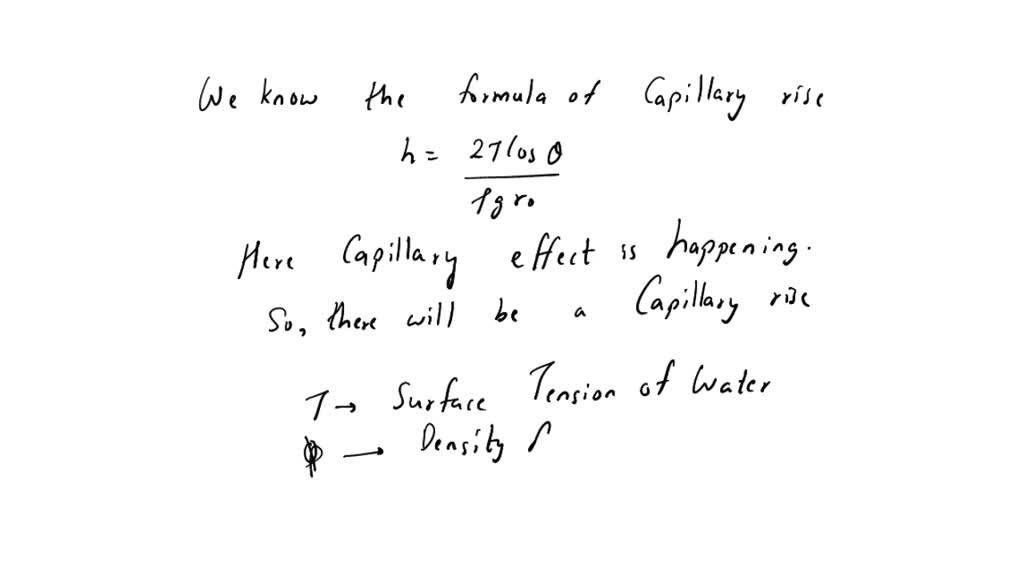 We know the formula of Capillary rise
h = 2T cos θ
ρ g r₀
Here Capillary effect is happening.
So, there will be a Capillary rise
T → Surface Tension of Water
→ Density ρ